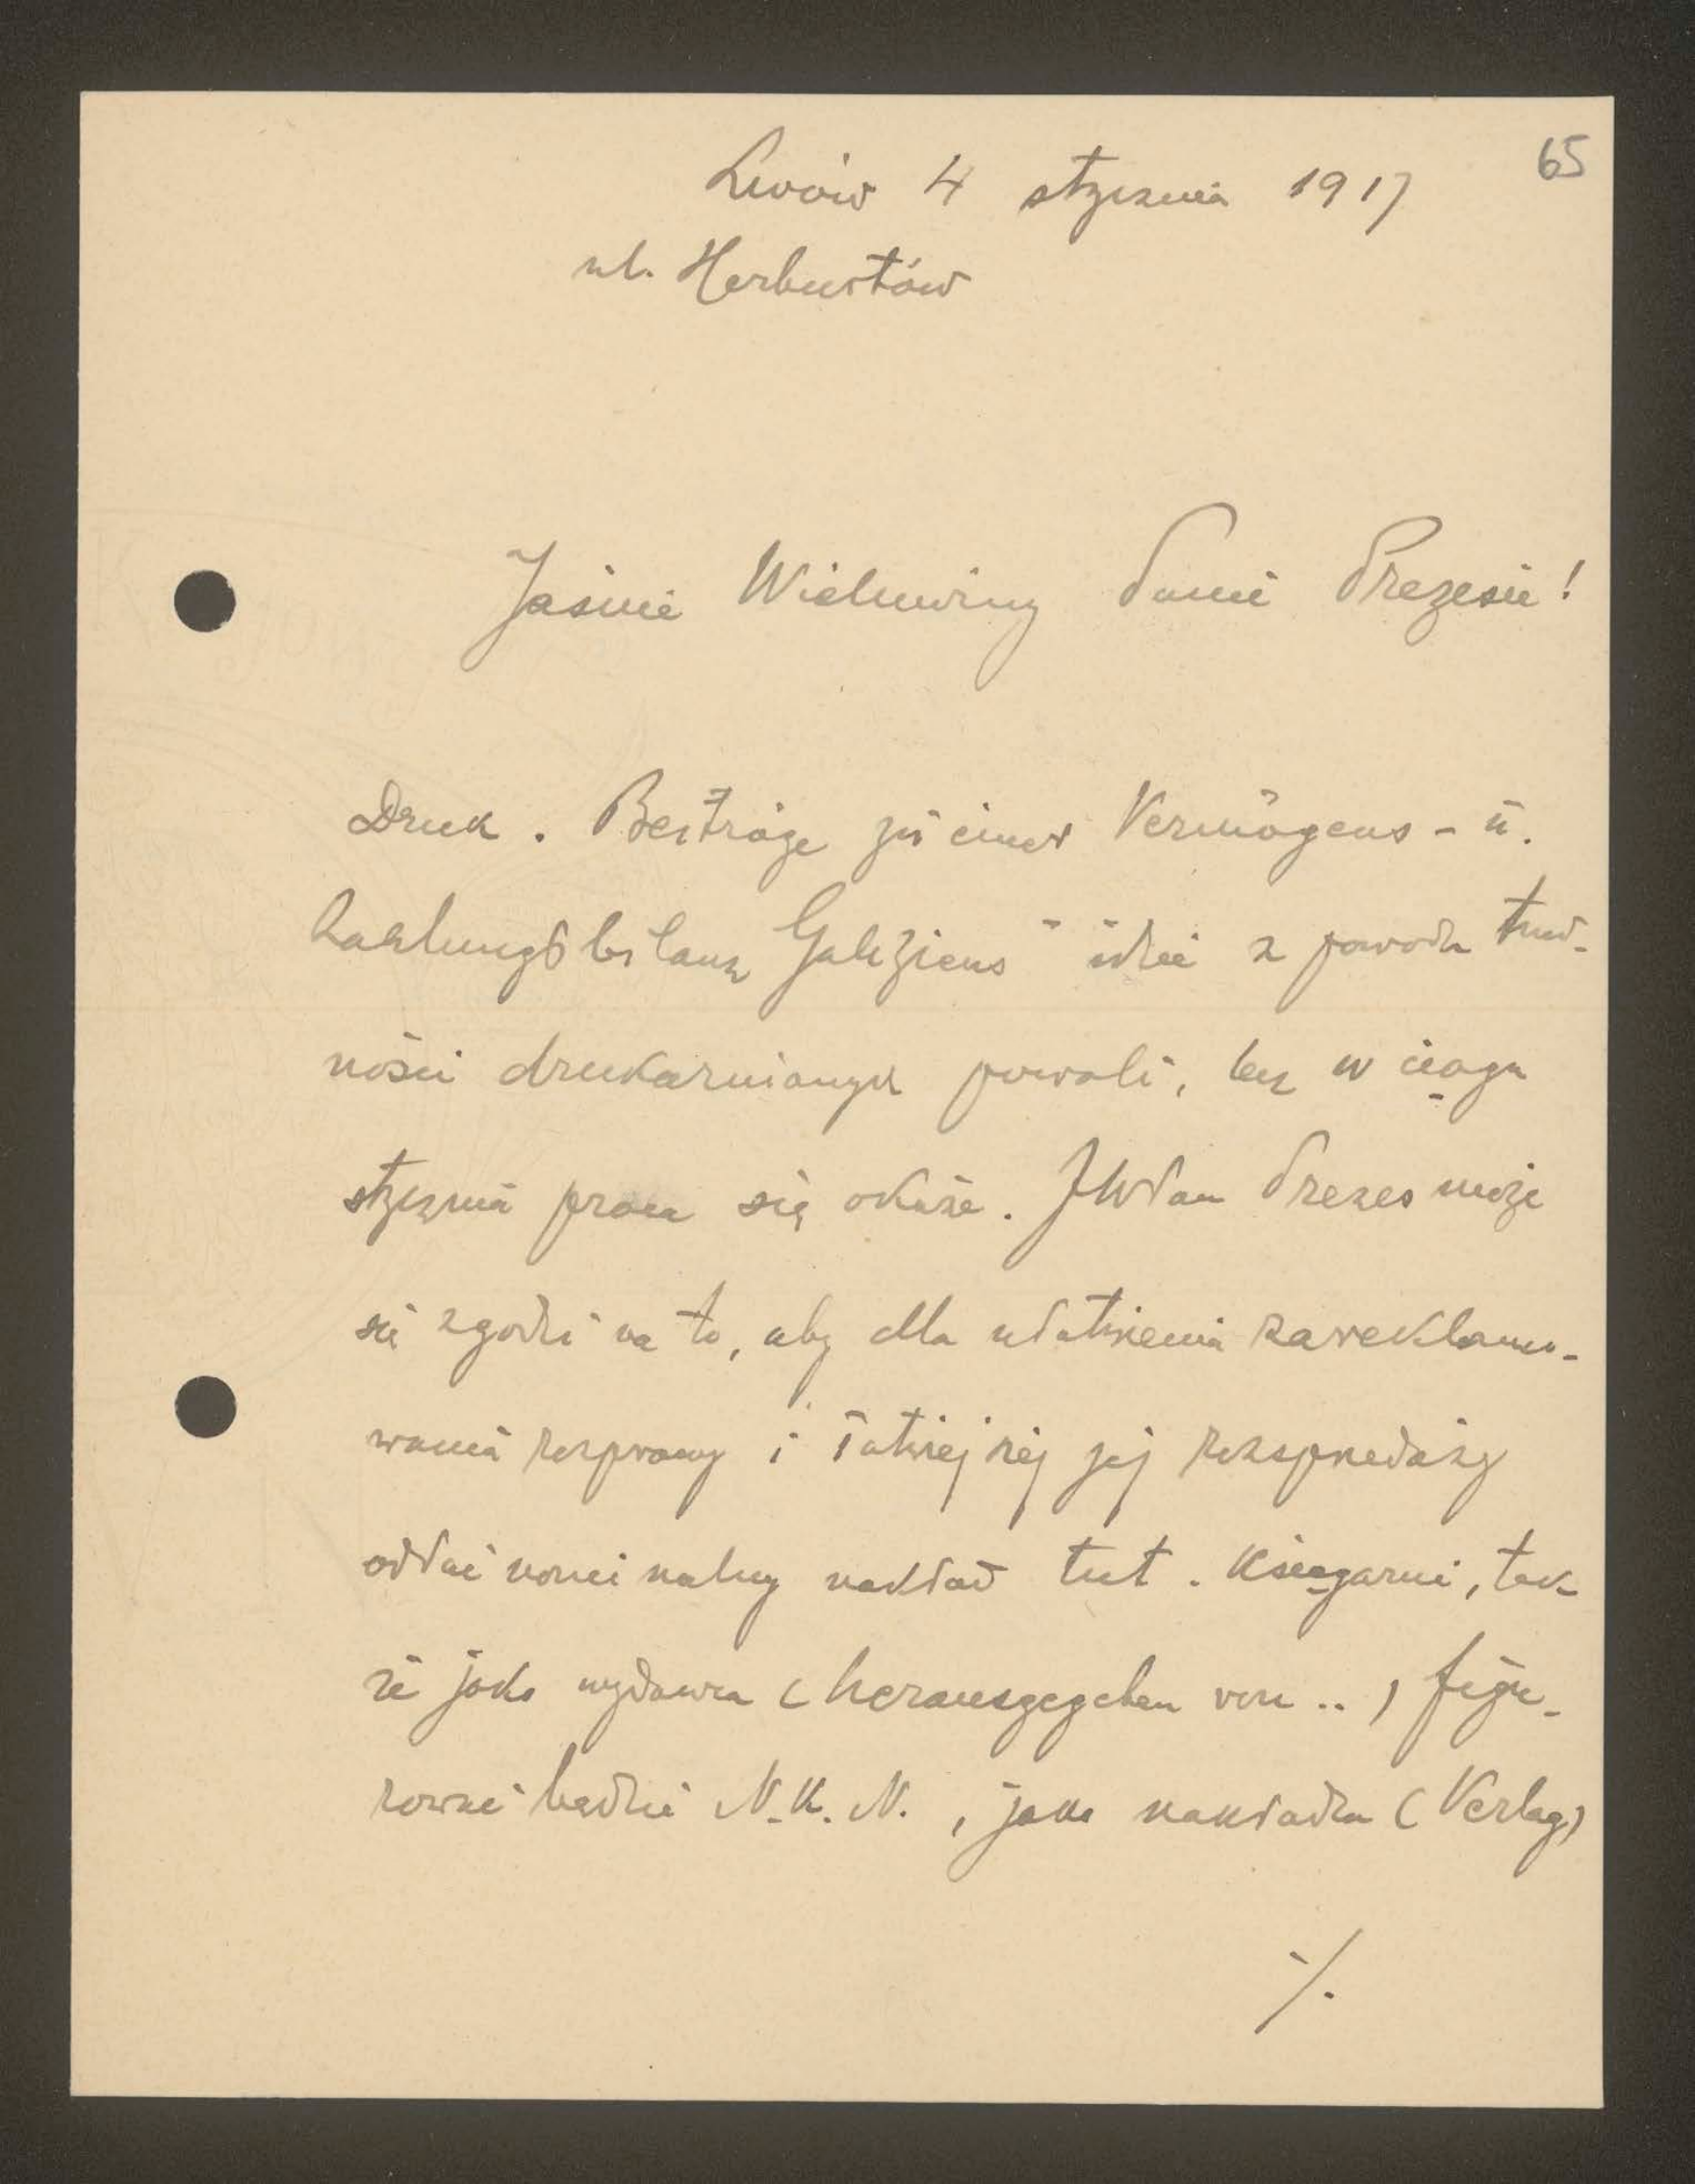 65
Lwów 4 stycznia 1917
ul. Herburtów
Jaśnie Wielmożny Panie Prezesie!
Druk „Beiträge zu einer Vermögens- u.
Zahlungsbilanz Galiziens" idzie z powodu trud-
ności drukarnianych powoli, lecz w ciągu
stycznia praca się okaże. JWPan Prezes może
się zgodzi na to, aby dla ułatwienia zareklamo-
wania rozprawy i łatwiejszej jej rozsprzedaży
oddać nominalny nakład tut. księgarni, tak
że jako wydawca (herausgegeben von ..) figu-
rować będzie N.K.N., jako nakładca (Verlag)
./.